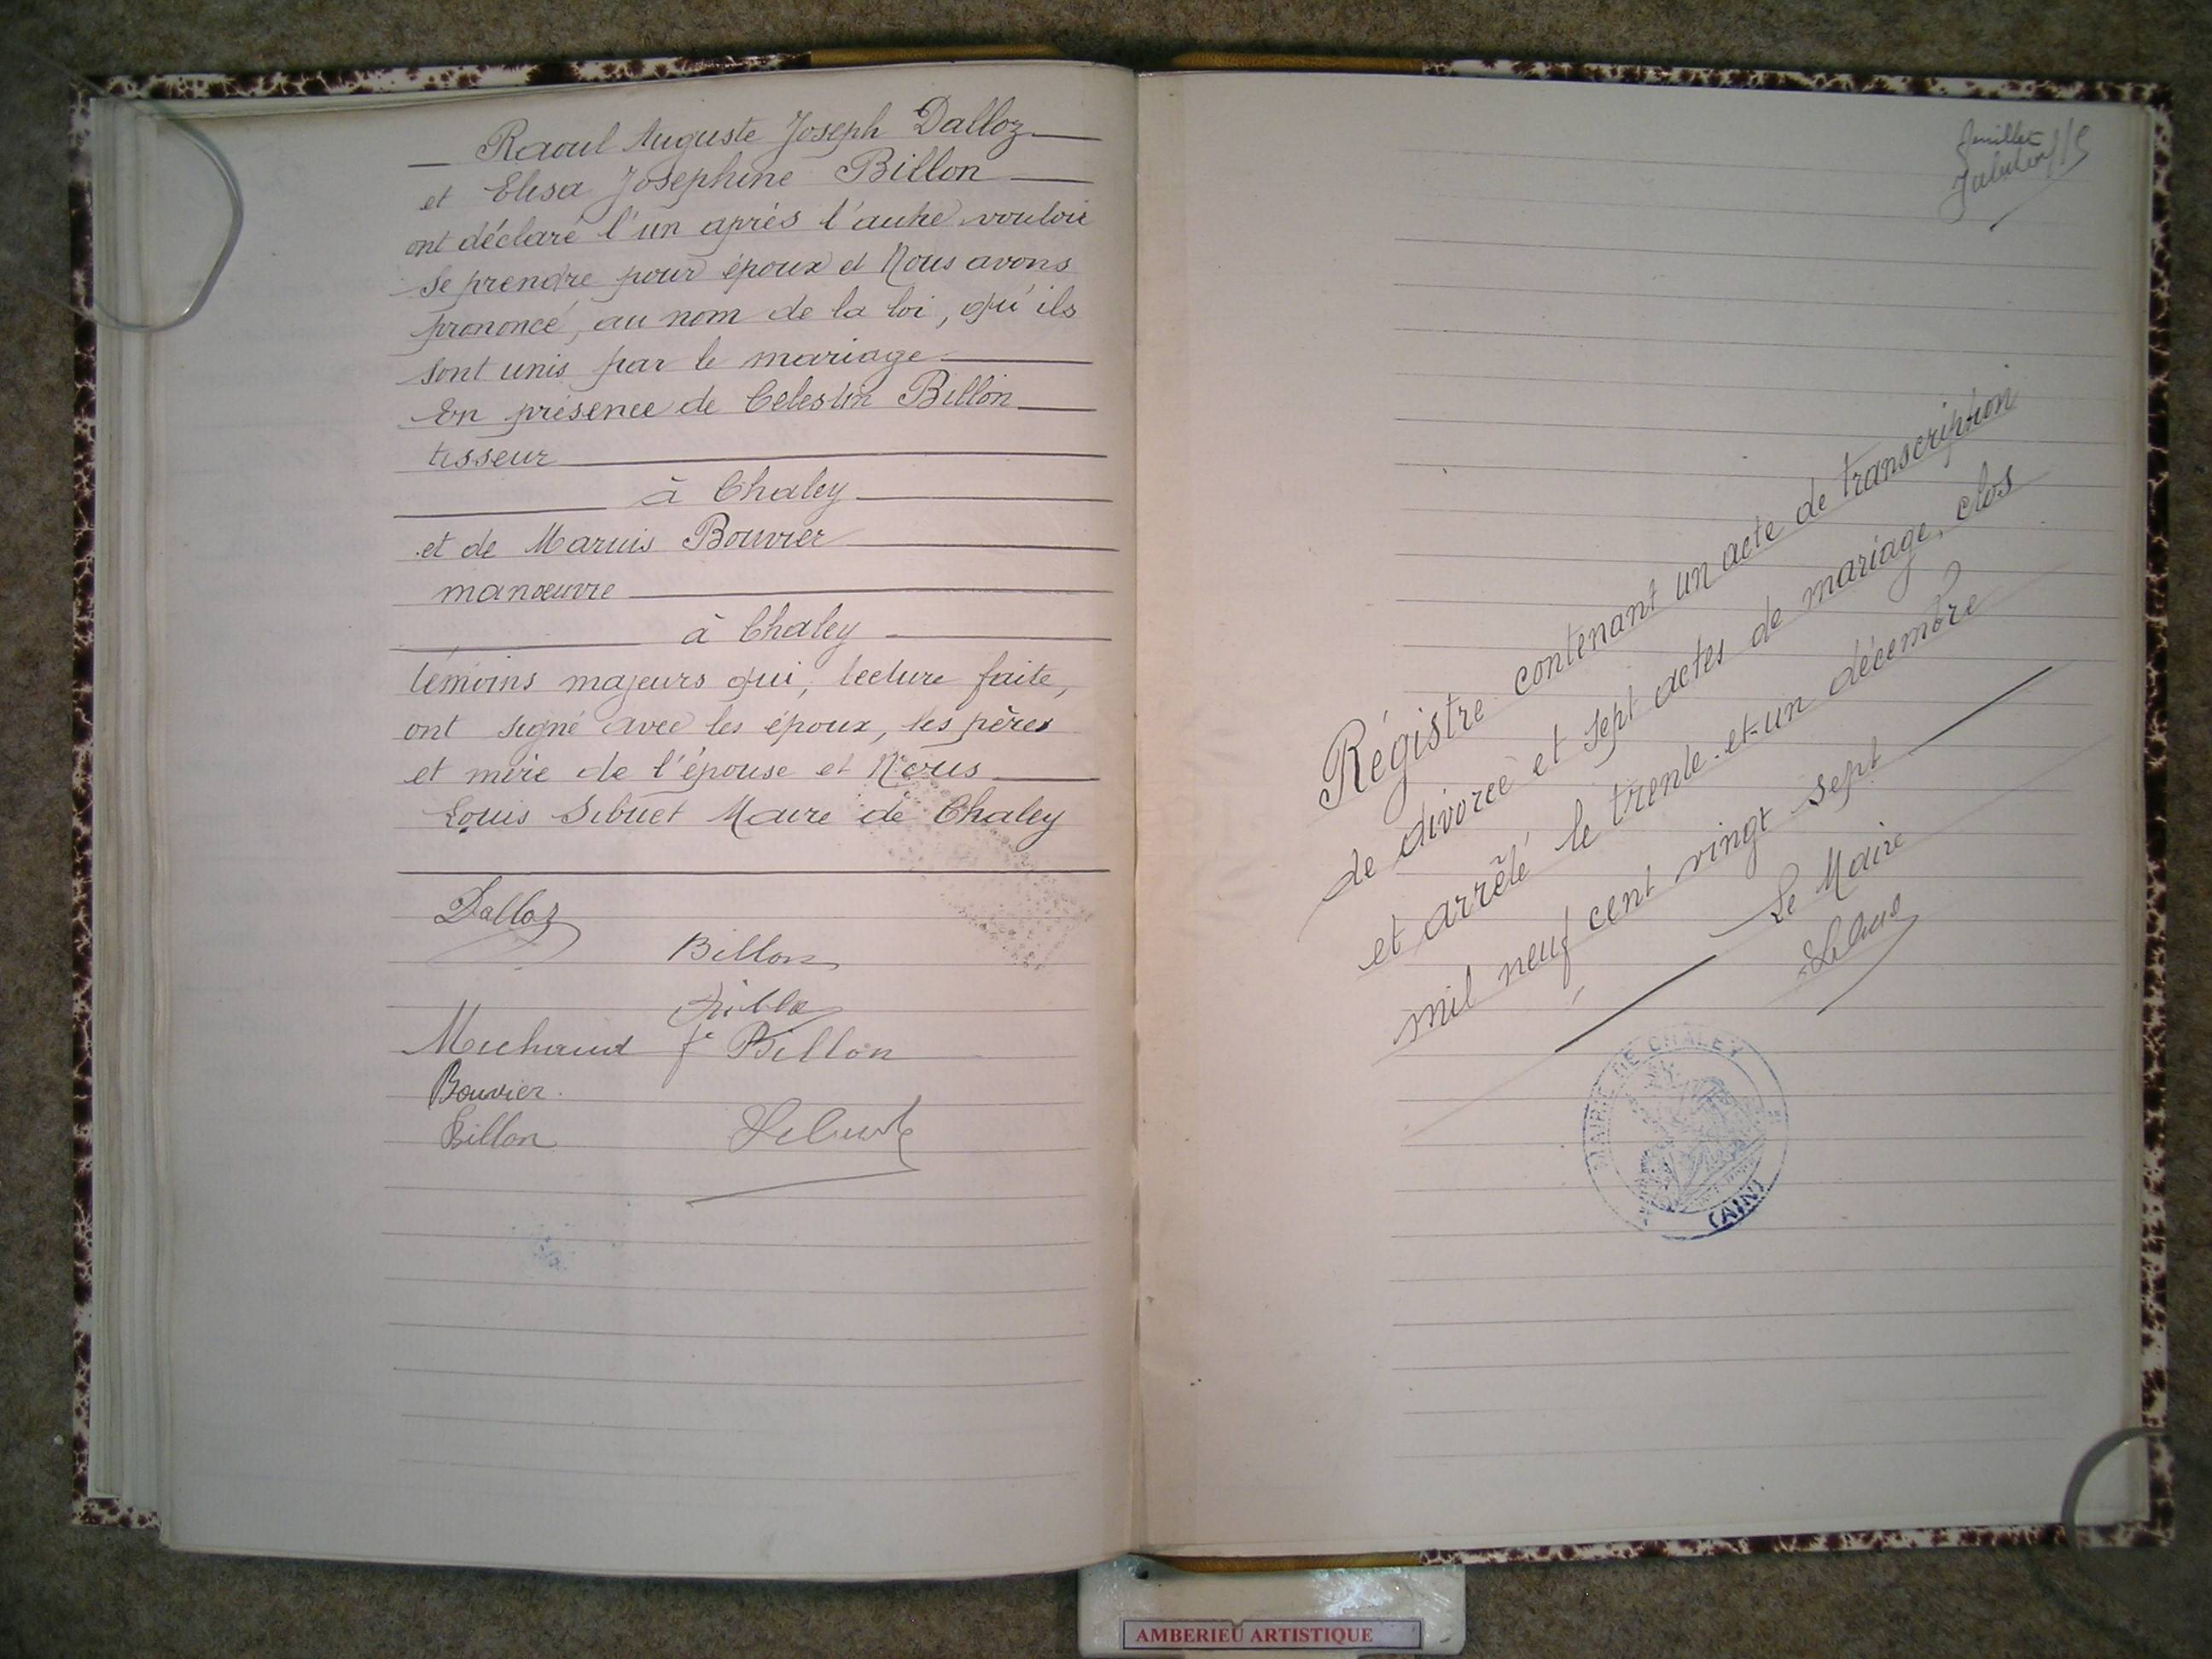 Raoul Auguste Joseph Dalloz
et Elisa Joséphine Billon
ont déclaré l'un après l'autre vouloir
se prendre pour époux et Nous avons
prononcé, au nom de la loi, qu'ils
sont unis par le mariage
En présence de Célestin Billon
tisseur
à Chaley
et de Marius Bouvier
manœuvre
à Chaley
témoins majeurs qui, lecture faite,
ont signé avec les époux, les pères
et mère de l'épouse et Nous
Louis Sibuet Maire de Chaley
Dalloz
Billon
Michaud fe Billon
Bouvier
Billon
Sibuet
feuillet
Régistre contenant un acte de transcription
de divorce et sept actes de mariage, clos
et arrêté le trente-et-un décembre
mil neuf cent vingt sept
Le Maire
Sibuet
MAIRIE DE CHALEY
(AIN)
AMBERIEU ARTISTIQUE